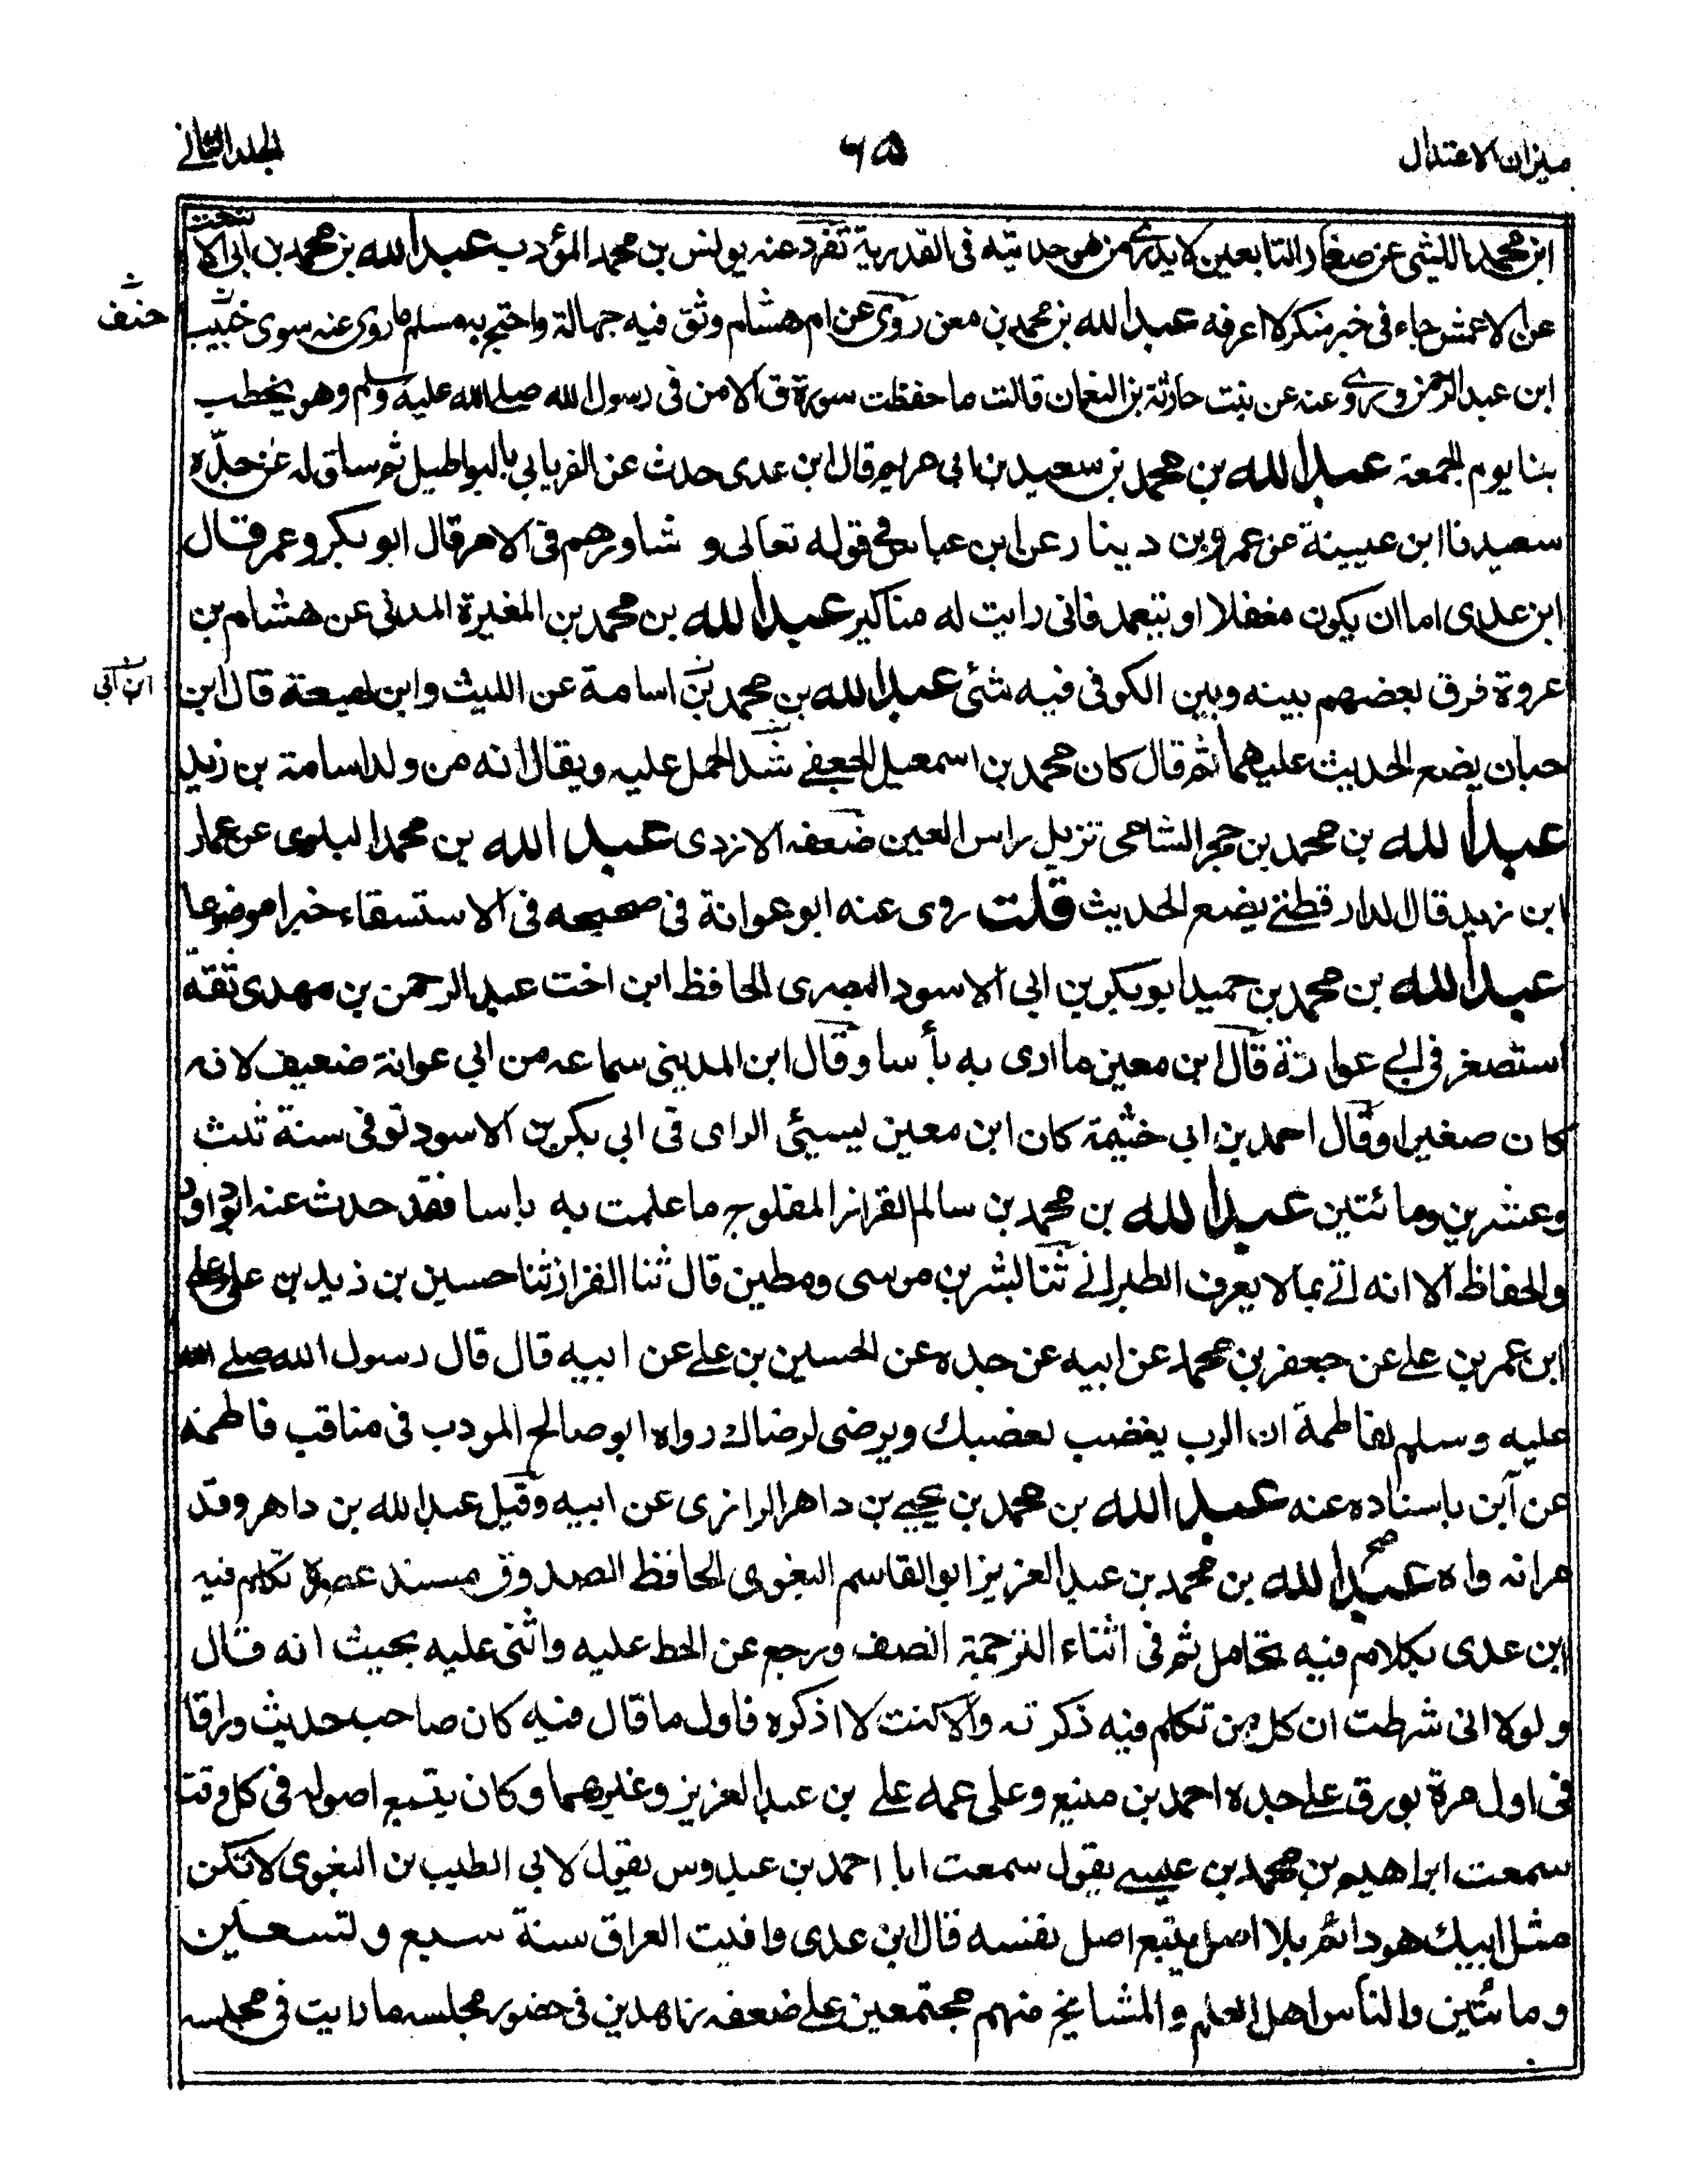 ميزان الاعتدال
٦٥
الجلد الثاني
ابن محمد الليثي عن صغار التابعين لا يدرى من هو حديثه في القدرية تفرد عنه يونس بن محمد المؤدب عبد الله بن محمد بن ابي الا
عن الاعمش جاء في خبر منكر لا اعرفه عبد الله بن محمد بن معن روى عن ام هشام وثق فيه جهالة واحتج به مسلم ما روى عنه سوى خبيب
ابن عبد الرحمن وروى عنه عن بنت حارثة بن النعمان قالت ما حفظت سورة ق الا من في رسول الله صلى الله عليه وسلم وهو يخطب
بنا يوم الجمعة عبد الله بن محمد بن سعيد بن ابي مريم قال ابن عدى حدث عن الفريابي بالبواطيل ثم ساق له عن جده
سعيد نا ابن عيينة عن عمرو بن دينار عن ابن عباس في قوله تعالى و شاورهم في الامر قال ابو بكر وعمر قال
ابن عدى اما ان يكون مغفلا او يتعمد فاني رايت له مناكير عبد الله بن محمد بن المغيرة المدني عن هشام بن
عروة فرق بعضهم بينه وبين الكوفي فيه شئ عبد الله بن محمد بن اسامة عن الليث وابن لهيعة قال ابن
ابن ابي
حبان يضع الحديث عليهما ثم قال كان محمد بن اسمعيل الجعفي شد الحمل عليه ويقال انه من ولد اسامة بن زيد
عبد الله بن محمد بن حجر الشامي نزيل راس العين ضعفه الازدى عبد الله بن محمد البلوى عن عمار
ابن زيد قال الدارقطني يضع الحديث قلت روى عنه ابو عوانة في صحيحه في الاستسقاء خبرا موضوعا
عبد الله بن محمد بن حميد ابو بكر بن ابي الاسود البصرى الحافظ ابن اخت عبد الرحمن بن مهدى ثقة
استصغر في ابي عوانة قال ابن معين ما ارى به بأسا وقال ابن المديني سماعه من ابي عوانة ضعيف لانه
كان صغيرا وقال احمد بن ابي خثيمة كان ابن معين يسيئ الراى في ابي بكر بن الاسود توفي سنة ثلث
وعشرين ومائتين عبد الله بن محمد بن سالم القزاز المفلوج ما علمت به باسا فقد حدث عنه ابو داود
والحفاظ الا انه اتى بما لا يعرف الطبراني ثنا بشر بن موسى ومطين قال ثنا القزاز ثنا حسين بن زيد بن على وعلى
ابن عمر بن علي عن جعفر بن محمد عن ابيه عن جده عن الحسين بن علي عن ابيه قال قال رسول الله صلى الله
عليه وسلم لفاطمة ان الرب يغضب لغضبك ويرضى لرضاك رواه ابو صالح المودب في مناقب فاطمة
عن ابن باسناده عنه عبد الله بن محمد بن يحيى بن داهر الرازى عن ابيه وقيل عبد الله بن داهر وقد
مر انه واه عبد الله بن محمد بن عبد العزيز ابو القاسم البغوى الحافظ الصدوق مسند عصره تكلم فيه
ابن عدى بكلام فيه تحامل ثم في اثناء الترجمة انصف ورجع عن الحط عليه واثنى عليه بحيث انه قال
ولولا اني شرطت ان كل من تكلم فيه ذكرته والا كنت لا اذكره فاول ما قال فيه كان صاحب حديث وراقا
في اول مرة يورق على جده احمد بن منيع وعلى عمه علي بن عبد العزيز وغيرهما وكان يتبع اصوله في كل وقت
سمعت ابراهيم بن محمد بن عيسى يقول سمعت ابا احمد بن عبدوس يقول لابي الطيب بن البغوى لا تكن
مثل ابيك هو دائم بلا اصل يتبع اصل نفسه قال ابن عدى وافيت العراق سنة سبع وتسعين
ومائتين والناس اهل العلم والمشايخ منهم مجتمعين على ضعفه زاهدين في حضور مجلسه ما رايت في مجلسه